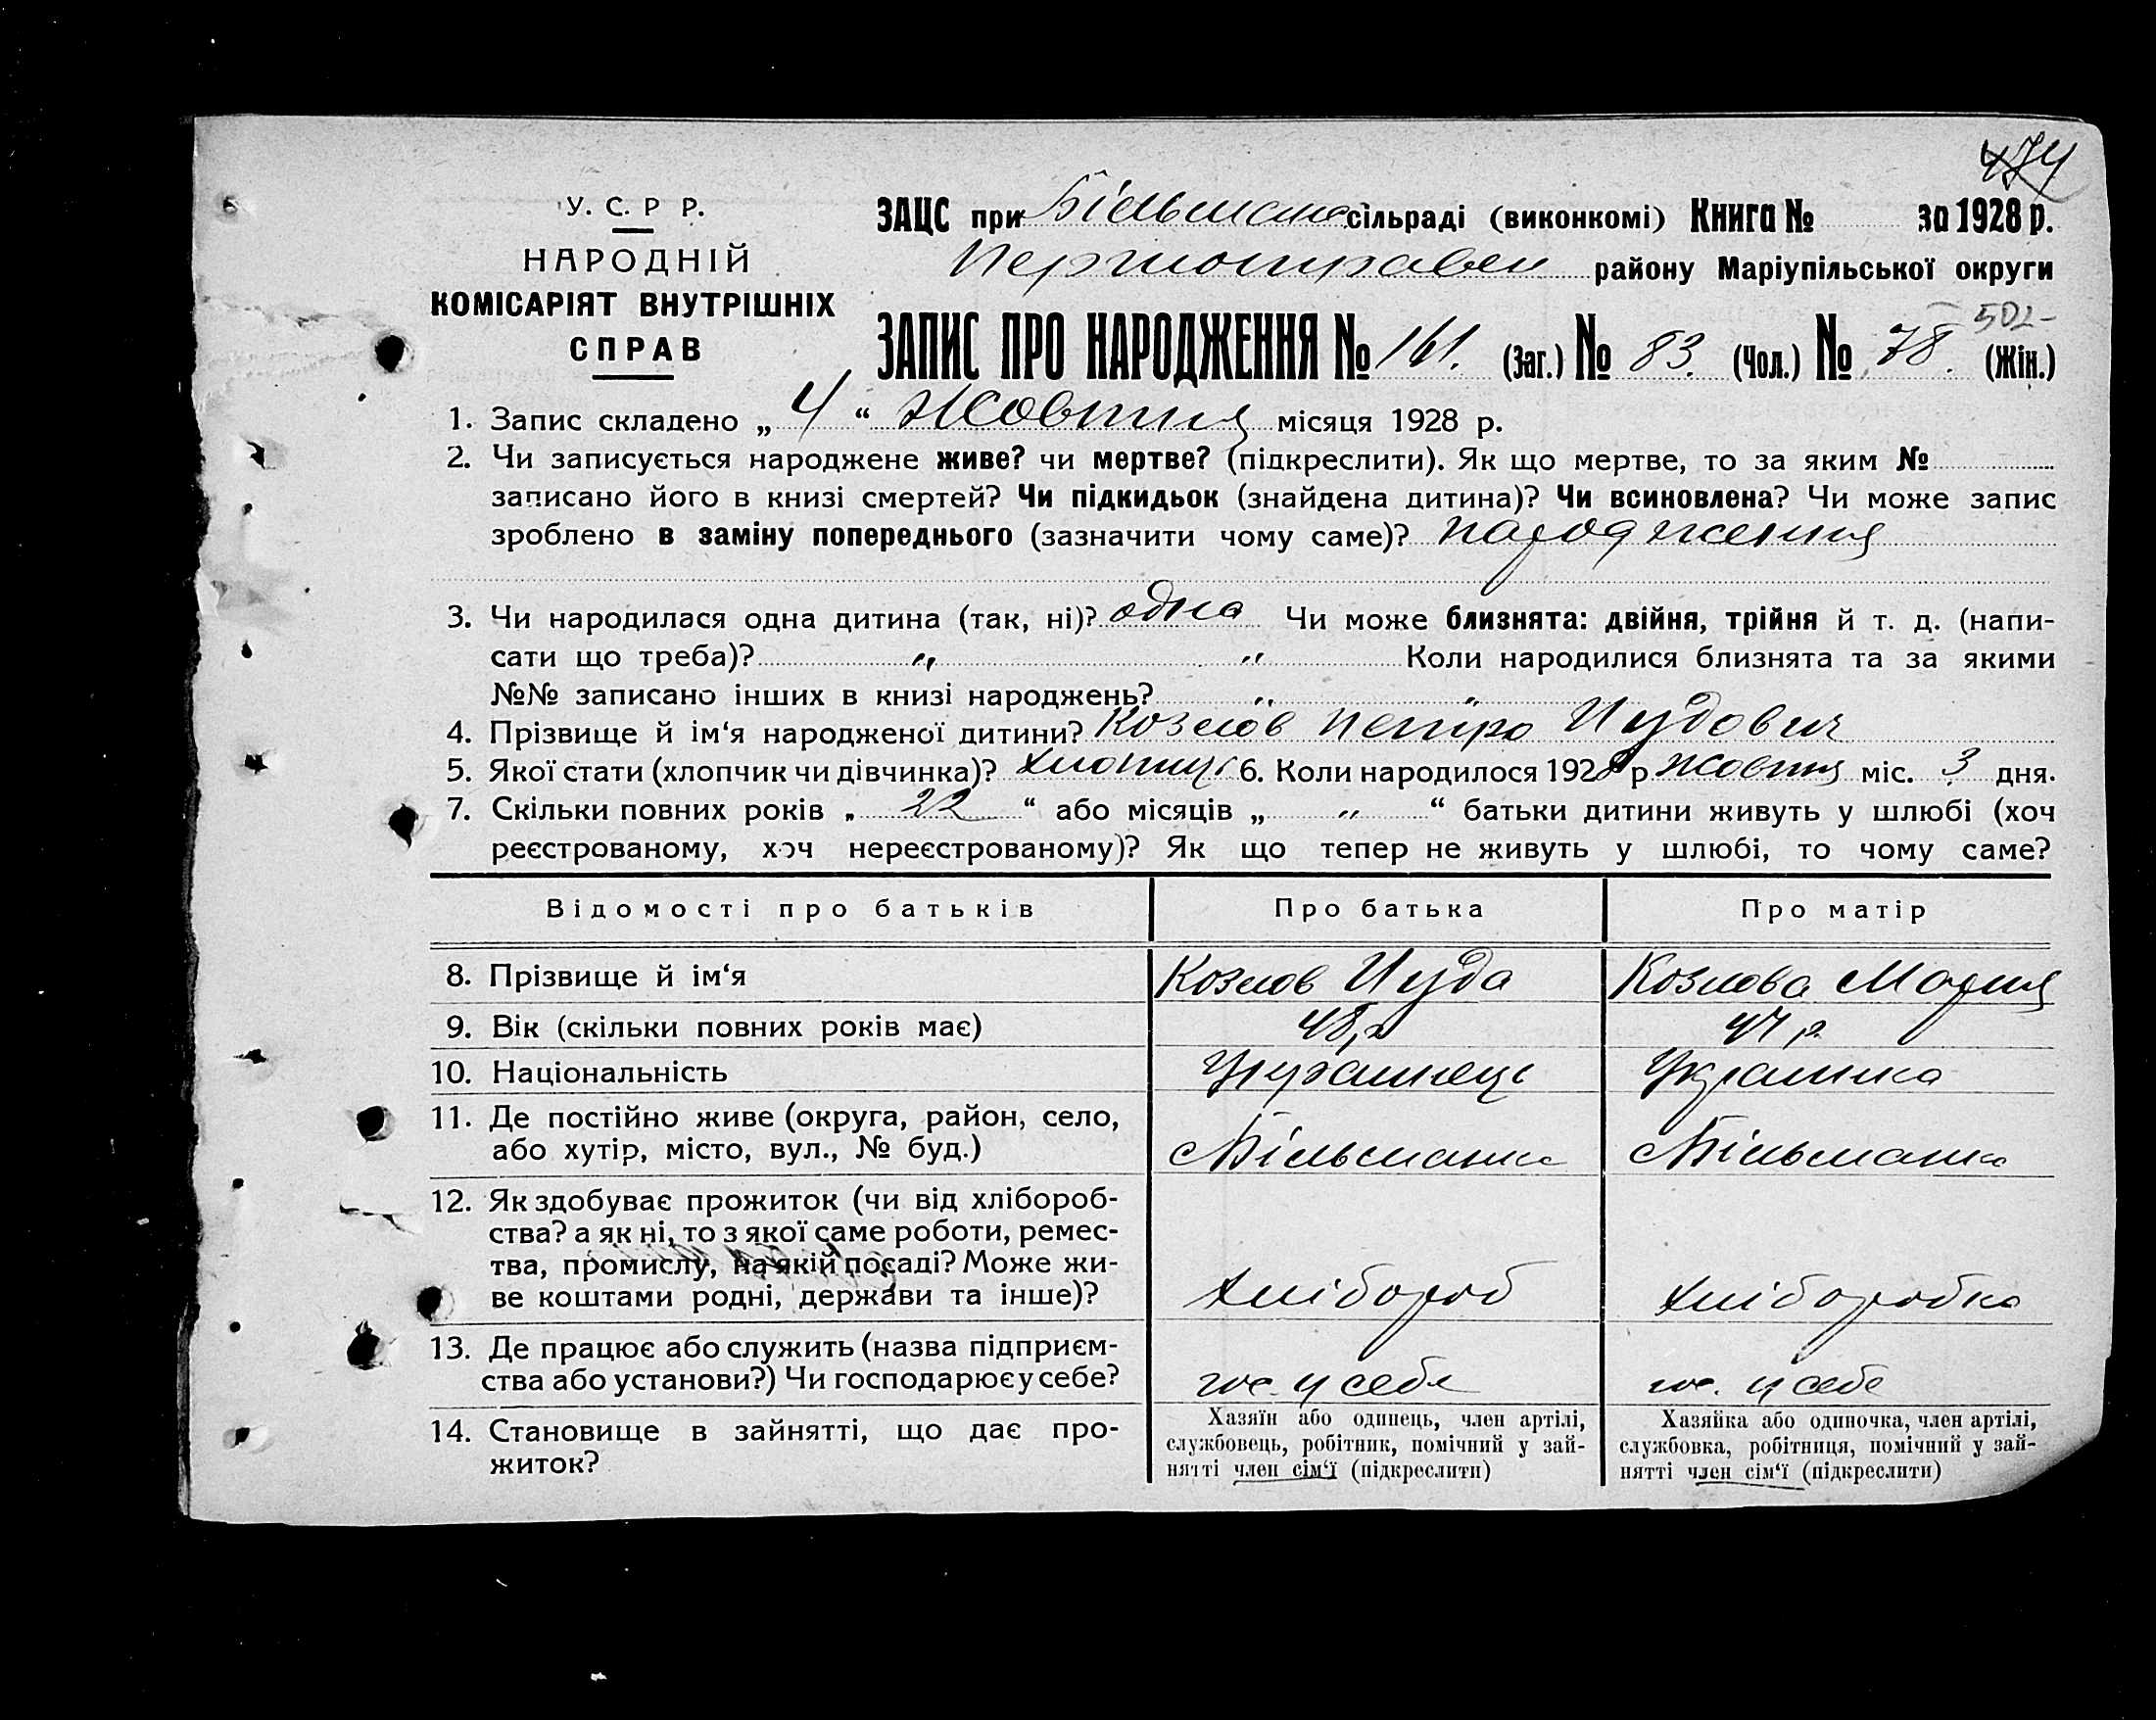 474
У. С. Р Р.
НАРОДНІЙ
КОМІСАРІЯТ ВНУТРІШНІХ
СПРАВ
ЗАЦС при Більманс сільраді (виконкомі) Книга № за 1928 р.
Першотравен району Маріупільської округи
502-
ЗАПИС ПРО НАРОДЖЕННЯ № 161. (Заг.) № 83. (Чол.) № 78. (Жін.)
1. Запис складено „ 4 “ Жовтня місяця 1928 р.
2. Чи записується народжене живе? чи мертве? (підкреслити). Як що мертве, то за яким №
записано його в книзі смертей? Чи підкидьок (знайдена дитина)? Чи всиновлена? Чи може запис
зроблено в заміну попереднього (зазначити чому саме)? народження
3. Чи народилася одна дитина (так, ні)? одна Чи може близнята: двійня, трійня й т. д. (напи-
сати що треба)? „ „ Коли народилися близнята та за якими
№№ записано інших в книзі народжень? „ „
4. Прізвище й ім‘я народженої дитини? Козлов Петро Иудович
5. Якої стати (хлопчик чи дівчинка)? 6. Коли народилося 1928 р. жовтня міс. 3 дня.
7. Скільки повних років „ 22 “ або місяців „ „ “ батьки дитини живуть у шлюбі (хоч
реєстрованому, хоч нереєстрованому)? Як що тепер не живуть у шлюбі, то чому саме?
Відомості про батьків Про батька Про матір
8. Прізвище й ім‘я Козлов Иуда Козлова Мария
9. Вік (скільки повних років має) 48 р 47 р
10. Національність Українець Українка
11. Де постійно живе (округа, район, село,
або хутір, місто, вул., № буд.) с Більманка с Більманка
12. Як здобуває прожиток (чи від хлібороб-
ства? а як ні, то з якої саме роботи, ремес-
тва, промислу, на якій посаді? Може жи-
ве коштами родні, держави та інше)? Хлібороб Хліборобка
13. Де працює або служить (назва підприєм-
ства або установи?) Чи господарює у себе? гос. у себе гос. у себе
14. Становище в зайнятті, що дає про-
житок?
Хазяїн або одинець, член артілі,
службовець, робітник, помічний у зай-
нятті член сім‘ї (підкреслити)
Хазяйка або одиночка, член артілі,
службовка, робітниця, помічний у зай-
нятті член сім‘ї (підкреслити)